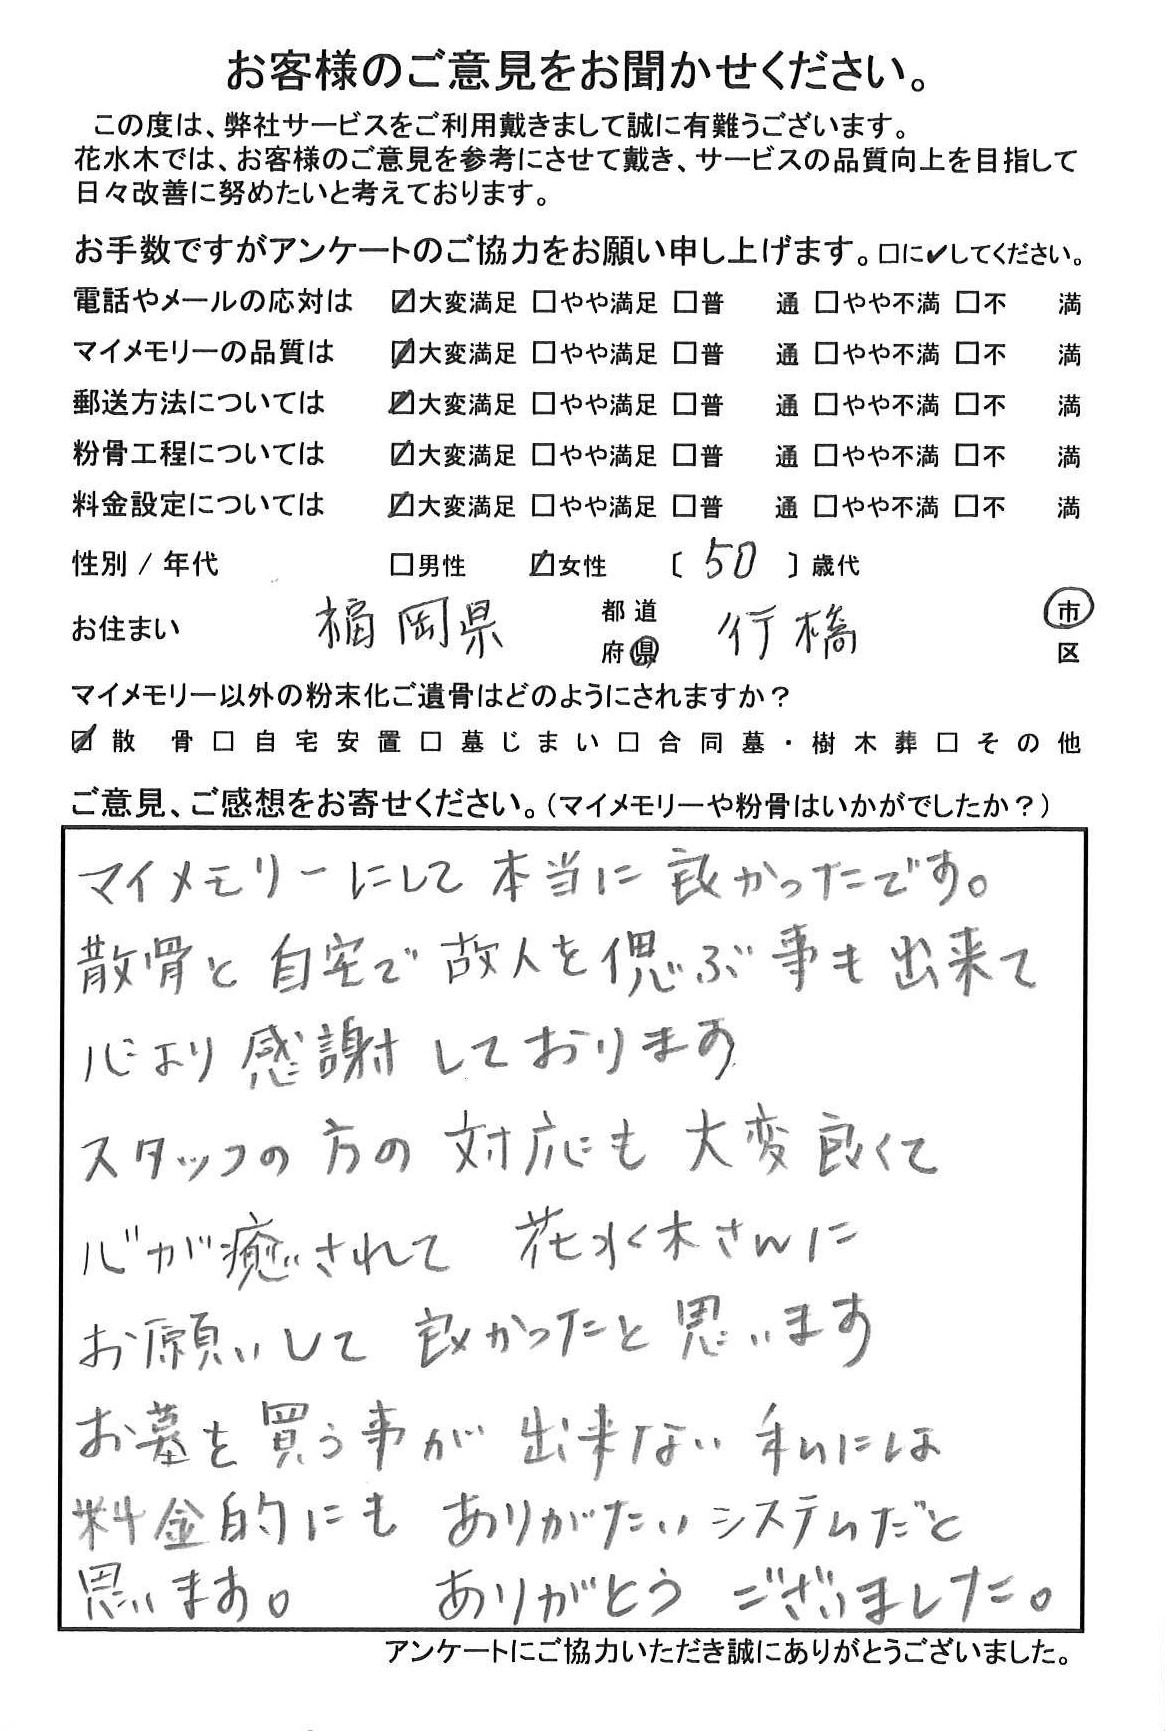 お客様のご意見をお聞かせください。
この度は、弊社サービスをご利用戴きまして誠に有難うございます。
花水木では、お客様のご意見を参考にさせて戴き、サービスの品質向上を目指して
日々改善に努めたいと考えております。
お手数ですがアンケートのご協力をお願い申し上げます。□に✔してください。
電話やメールの応対は ☑大変満足 □やや満足 □普 通 □やや不満 □不 満
マイメモリーの品質は ☑大変満足 □やや満足 □普 通 □やや不満 □不 満
郵送方法については ☑大変満足 □やや満足 □普 通 □やや不満 □不 満
粉骨工程については ☑大変満足 □やや満足 □普 通 □やや不満 □不 満
料金設定については ☑大変満足 □やや満足 □普 通 □やや不満 □不 満
性別 / 年代 □男性 ☑女性 〔 50 〕歳代
お住まい 福岡県 都道府県 行橋 市区
マイメモリー以外の粉末化ご遺骨はどのようにされますか？
☑散 骨 □自宅安置 □墓じまい □合同墓・樹木葬 □その他
ご意見、ご感想をお寄せください。（マイメモリーや粉骨はいかがでしたか？）
マイメモリーにして 本当に 良かったです。
散骨と 自宅で 故人を 偲ぶ 事も 出来て
心より 感謝 しております
スタッフの 方の 対応にも 大変 良くて
心が 癒されて 花水木さんに
お願いして 良かったと 思います
お墓を 買う事が 出来ない 私には
料金的にも ありがたい システムだと
思います。 ありがとう ございました。
アンケートにご協力いただき誠にありがとうございました。